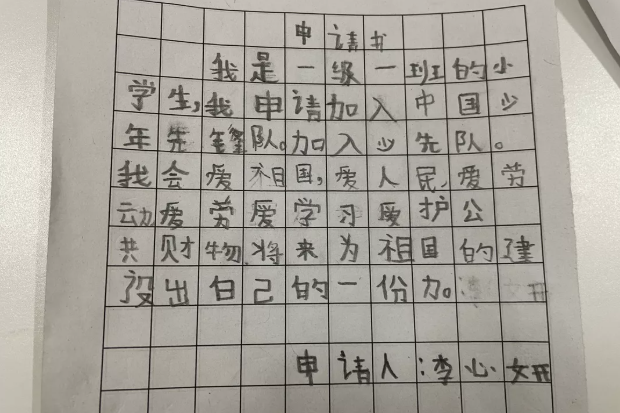 申请书
我是一级一班的小
学生,我申请加入中国少
年先锋队。加入少先队。
我会爱祖国,爱人民,爱劳
动爱劳爱学习爱护公
共财物.将来为祖国的建
设出自己的一份力。
申请人:李心妍